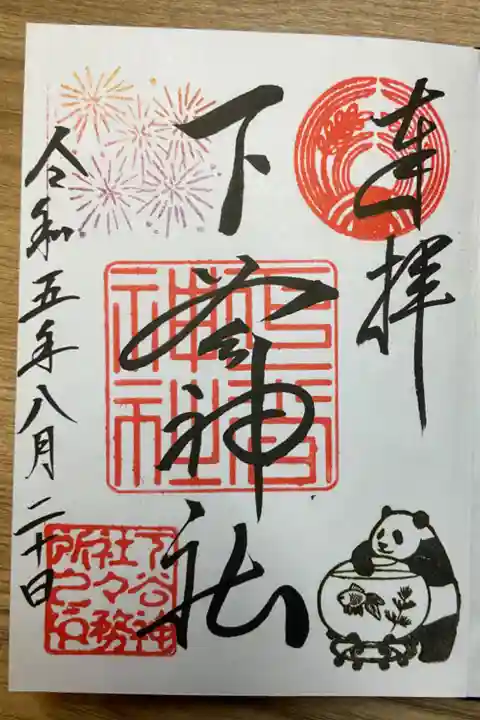 奉拝
下谷神社
下谷神社
令和五年八月二十日
下谷神社々務所之印